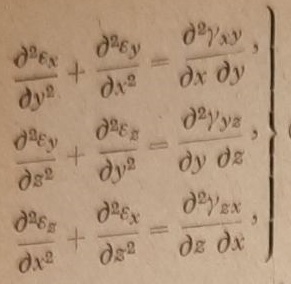 ∂²εₓ/∂y² + ∂²ε_y/∂x² = ∂²γ_xy/∂x ∂y,
∂²ε_y/∂z² + ∂²ε_z/∂y² = ∂²γ_yz/∂y ∂z,
∂²ε_z/∂x² + ∂²εₓ/∂z² = ∂²γ_zx/∂z ∂x,